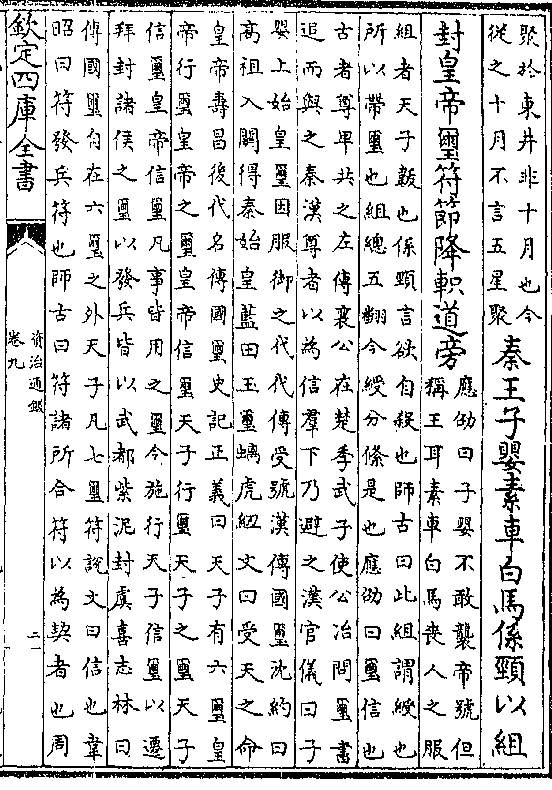 聚於東井非十月也今
從之十月不言五星聚
秦王子嬰素車白馬係頸以組
封皇帝璽符節降軹道旁
應劭曰子嬰不敢襲帝號但
稱王耳素車白馬喪人之服
組者天子韍也係頸言欲自殺也師古曰此組謂綬也
所以帶璽也組總五翻今綬分條是也應劭曰璽信也
古者尊卑共之左傳襄公在楚季武子使公冶問璽書
追而與之秦漢尊者以為信羣下乃避之漢官儀曰子
嬰上始皇璽因服御之代代傳受號漢傳國璽沈約曰
高祖入關得秦始皇藍田玉璽螭虎紐文曰受天之命
皇帝壽昌後代名傳國璽史記正義曰天子有六璽皇
帝行璽皇帝之璽皇帝信璽天子行璽天子之璽天子
信璽皇帝信璽凡事皆用之璽令施行天子信璽以遷
拜封諸侯之璽以發兵皆以武都紫泥封虞喜志林曰
傳國璽自在六璽之外天子凡七璽符説文曰信也韋
昭曰符發兵符也師古曰符諸所合符以為契者也周
欽定四庫全書
資治通鑑
卷九
二